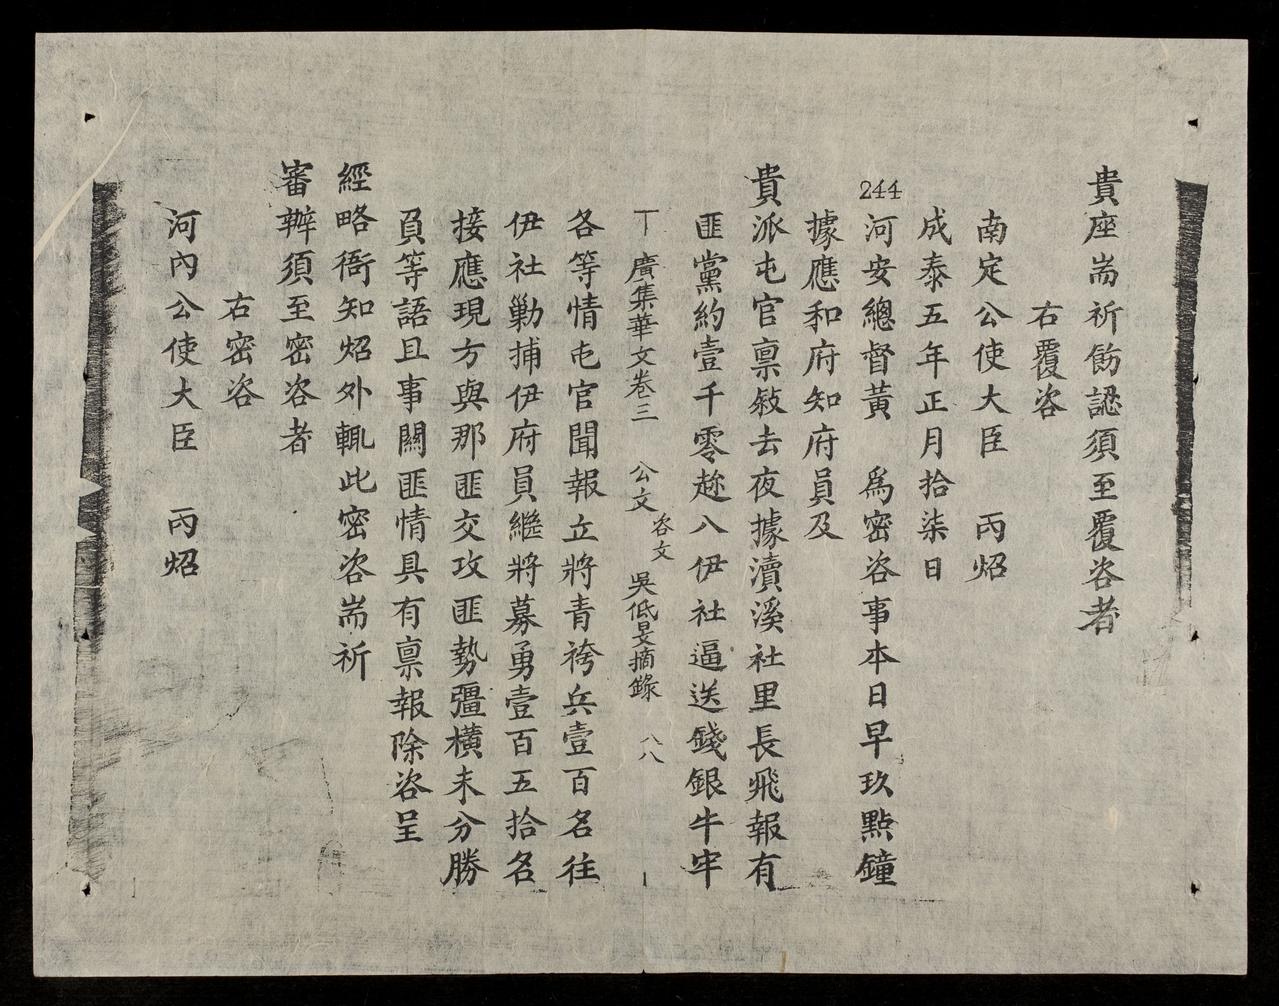 貴座耑祈飭認須至覆咨者
右覆咨
南定公使大臣 丙炤
成泰五年正月拾柒日
244
河安總督黃 爲密咨事本日早玖點鐘
據應和府知府員及
貴派屯官稟敍去夜據瀆溪社里長飛報有
匪黨約壹千零趂八伊社逼送錢銀牛牢
廣集華文卷三 公文 咨文 吳低旻摘錄 八八
各等情屯官聞報立將青袴兵壹百名往
伊社勦捕伊府員繼將募勇壹百五拾名
接應現方與那匪交攻匪勢彊橫未分勝
負等語且事關匪情具有稟報除咨呈
經略衙知炤外輒此密咨耑祈
審辦須至密咨者
右密咨
河內公使大臣 丙炤